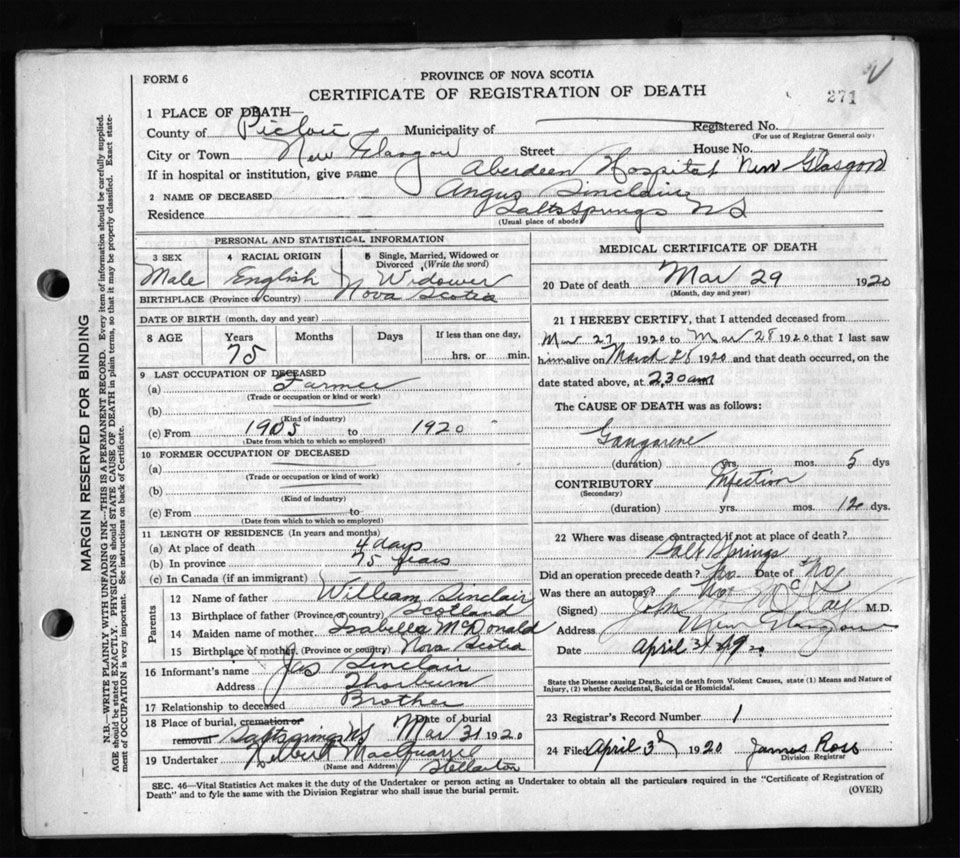 FORM 6
PROVINCE OF NOVA SCOTIA
CERTIFICATE OF REGISTRATION OF DEATH
271
1 PLACE OF DEATH
County of Pictou Municipality of Registered No.
(For use of Registrar General only)
City or Town New Glasgow Street House No.
If in hospital or institution, give name Aberdeen Hospital New Glasgow
2 NAME OF DECEASED Angus Sinclair
Residence Saltsprings NS
(Usual place of abode)
PERSONAL AND STATISTICAL INFORMATION
3 SEX 4 RACIAL ORIGIN 5 Single, Married, Widowed or Divorced (Write the word)
Male English Widower
BIRTHPLACE (Province or Country) Nova Scotia
DATE OF BIRTH (month, day and year)
8 AGE Years Months Days If less than one day,
75 hrs. or min.
9 LAST OCCUPATION OF DECEASED
(a) Farmer
(Trade or occupation or kind or work)
(b)
(Kind of industry)
(c) From 1905 to 1920
(Date from which to which so employed)
10 FORMER OCCUPATION OF DECEASED
(a)
(Trade or occupation or kind of work)
(b)
(Kind of industry)
(c) From to
(Date from which to which so employed)
11 LENGTH OF RESIDENCE (In years and months)
(a) At place of death 4 days
(b) In province 75 years
(c) In Canada (if an immigrant)
Parents
12 Name of father William Sinclair
13 Birthplace of father (Province or Country) Scotland
14 Maiden name of mother Isabella McDonald
15 Birthplace of mother (Province or country) Nova Scotia
16 Informant's name Jas Sinclair
Address Thorburn
17 Relationship to deceased Brother
18 Place of burial, cremation or removal Saltsprings NS Date of burial Mar 31 1920
19 Undertaker Hilbert MacQuarrie
(Name and Address) Stellarton
MEDICAL CERTIFICATE OF DEATH
20 Date of death Mar 29 1920
(Month, day and year)
21 I HEREBY CERTIFY, that I attended deceased from
Mar 27 1920 to Mar 28 1920 that I last saw
him alive on March 28 1920 and that death occurred, on the
date stated above, at 2.30 am
The CAUSE OF DEATH was as follows:
Gangarene
(duration) yrs. mos. 5 dys
CONTRIBUTORY Infection
(Secondary)
(duration) yrs. mos. 12 dys.
22 Where was disease contracted if not at place of death?
Salt Springs
Did an operation precede death? No Date of No
Was there an autopsy? No
(Signed) John McKay M.D.
Address New Glasgow
Date April 3 1920
State the Disease causing Death, or in death from Violent Causes, state (1) Means and Nature of
Injury, (2) whether Accidental, Suicidal or Homicidal.
23 Registrar's Record Number 1
24 Filed April 3d 1920 James Ross
Division Registrar
SEC. 46—Vital Statistics Act makes it the duty of the Undertaker or person acting as Undertaker to obtain all the particulars required in the "Certificate of Registration of
Death" and to fyle the same with the Division Registrar who shall issue the burial permit.
(OVER)
MARGIN RESERVED FOR BINDING
N.B.—WRITE PLAINLY WITH UNFADING INK—THIS IS A PERMANENT RECORD. Every item of information should be carefully supplied.
AGE should be stated EXACTLY. PHYSICIANS should STATE CAUSE OF DEATH in plain terms, so that it may be properly classified. Exact state-
ment of OCCUPATION is very important. See instructions on back of Certificate.